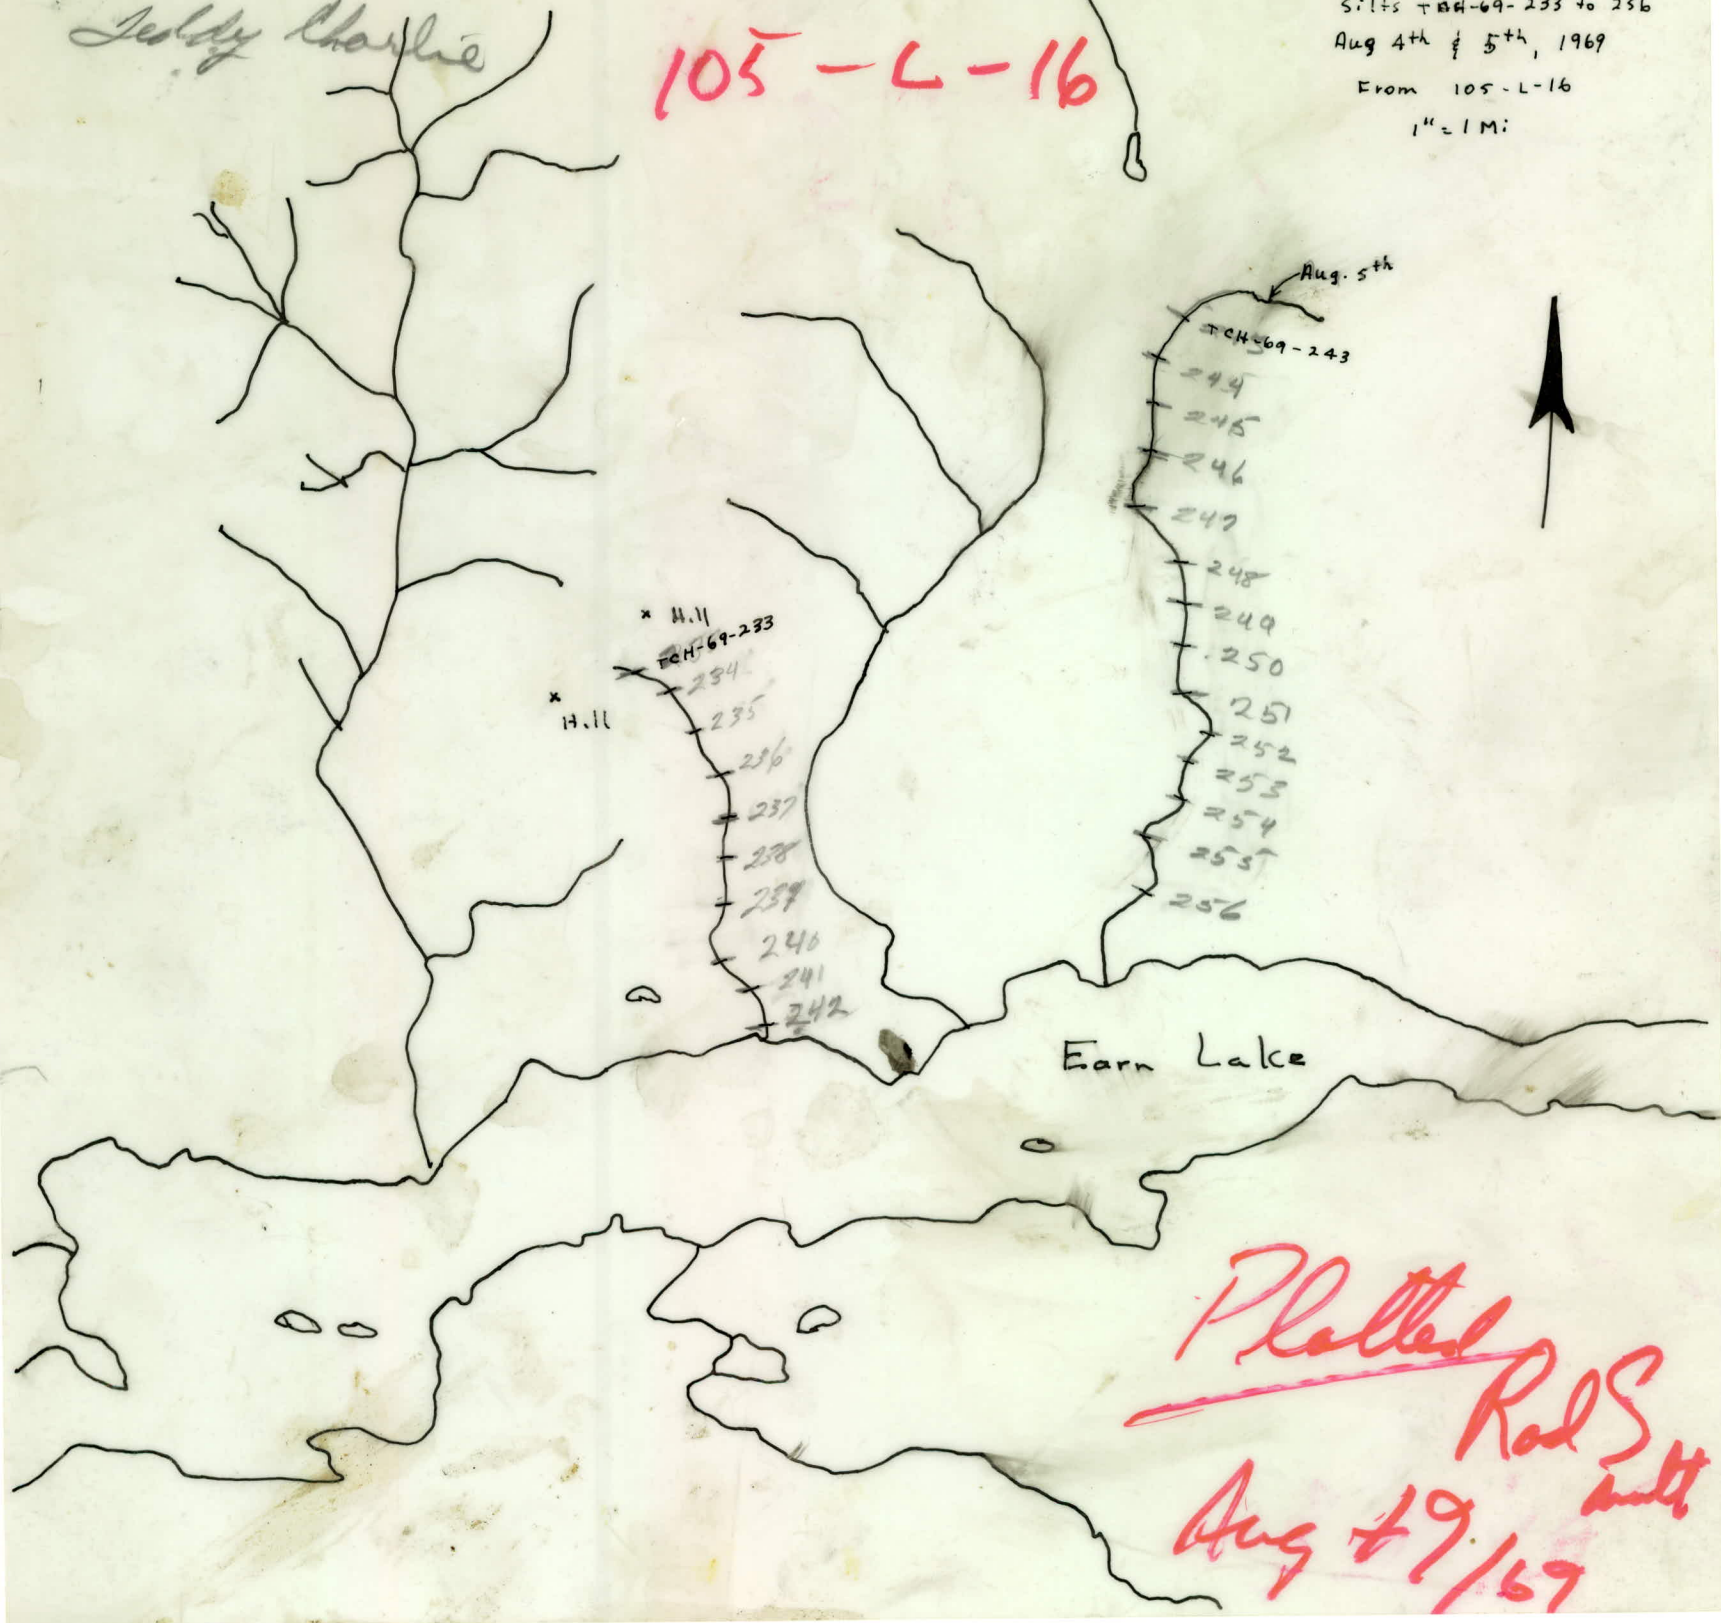 Teddy Charlie
105-L-16
Silts TCH-69-233 to 256
Aug 4th & 5th, 1969
From 105-L-16
1" = 1 Mi
Aug. 5th
TCH-69-243
244
245
246
247
248
249
250
251
252
253
254
255
256
Hill
TCH-69-233
Hill
234
235
236
237
238
239
240
241
242
Earn Lake
Plotted
Rod S
Aug 19/69